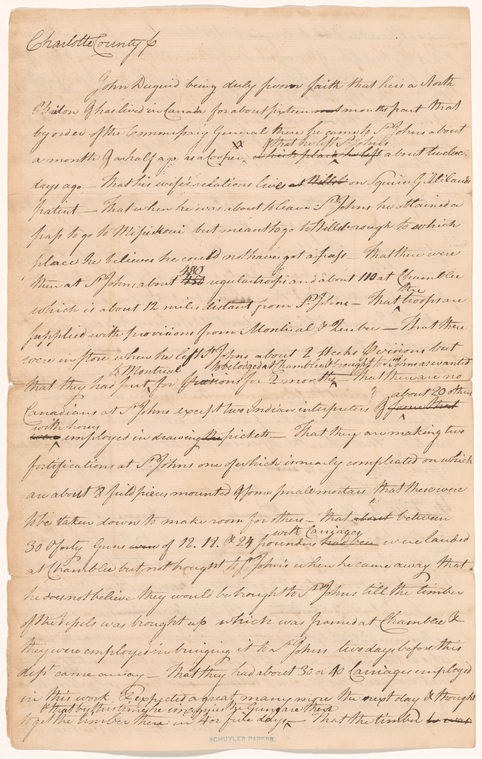 Charlotte County ss
John Duguid being duly sworn saith that he is a North
Briton & has lived in Canada for about sixteen months past that
by order of the Commissary General there he came to St. Johns about
that he left St Johns
a month & a half ago as a Cooper, which place he left about twelve
days ago — That his wife's relations live at on Squire Gillilands
patent — That when he was about to leave St Johns he obtained a
pass to go to Mesiskoui but meant to go to Willsborough to which
place he believes he could not have got a pass — that there were
480
then at St Johns about 450 regular troops and about 110 at Chamblee
the
which is about 12 miles distant from St Johns — That troops are
supplied with provisions from Montreal & Quebec — That there
were in store when he left St Johns about 2 Weeks Provisions but
to Montreal to be lodged at Chamblee & brought to St Johns as wanted
that they had sent for provisions for 2 months — That there are no
about 20 others
Canadians at St Johns except two Indian interpreters &
with horses
employed in drawing the pickets — That they are making two
fortifications at St Johns one of which is nearly compleated on which
are about 8 field pieces mounted & some small mortars, that these were
to be taken down to make room for others — that about between
with Carriages
30 & forty Guns were of 12. 18. & 24 pounders had been were landed
at Chamblee but not brought to St John's when he came away that
he does not believe they would be brought to St Johns till the timber
of the Vessels was brought up which was framed at Chamblee &
they were employed in bringing it to St Johns two days before this
dept came away — That they had about 30 or 40 Carriages employed
in this work & expected a great many more the next day & thought
& that by this time he imagines the Guns are there
to get the timber there in 4 or five days — That the timber
SCHUYLER PAPERS.